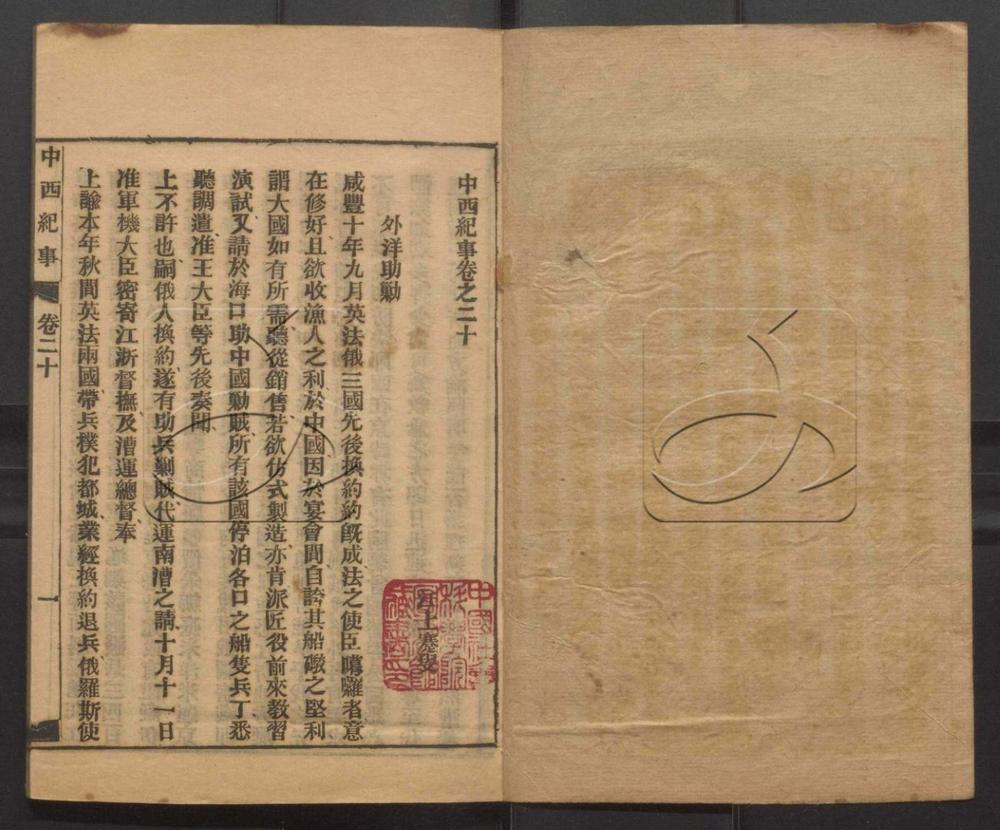 中西紀事卷之二十
江上蹇叟
外洋助勦
咸豐十年九月英法俄三國先後換約約旣成法之使臣噶囉者意
在修好且欲收漁人之利於中國因於宴會間自誇其船礮之堅利
謂大國如有所需聽從銷售若欲仿式製造亦肯派匠役前來教習
演試又請於海口助中國勦賊所有該國停泊各口之船隻兵丁悉
聽調遣准王大臣等先後奏聞
上不許也嗣俄人換約遂有助兵勦賊代運南漕之請十月十一日
准軍機大臣密寄江浙督撫及漕運總督奉
上諭本年秋間英法兩國帶兵撲犯都城業經換約退兵俄羅斯使
中西紀事 卷二十 一